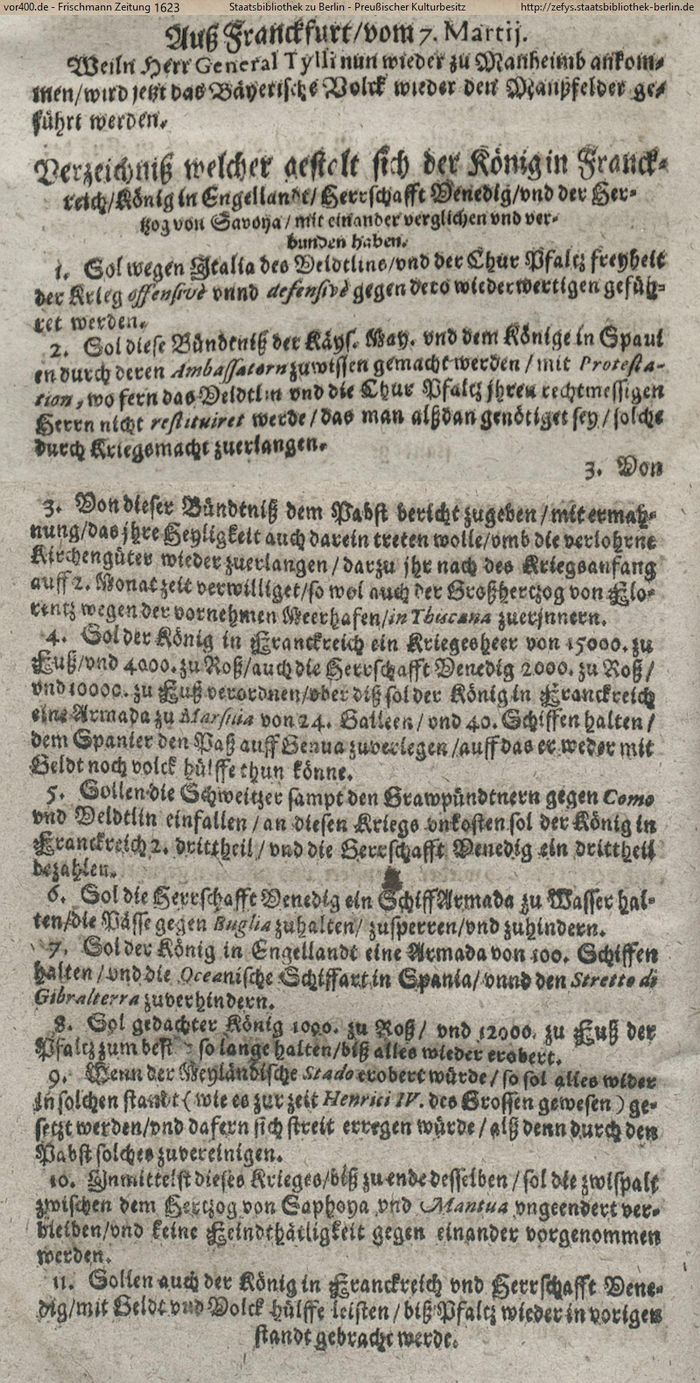 vor400.de - Frischmann Zeitung 1623 Staatsbibliothek zu Berlin - Preußischer Kulturbesitz http://zefys.staatsbibliothek-berlin.de
Auß Franckfurt/vom 7. Martij.
Weiln Herr General Tylli nun wieder zu Manheimb ankom-
men/wird jetzt das Bäyerische Volck wieder den Manßfelder ge-
führt werden.
Verzeichniß welcher gestelt sich der König in Franck-
reich/König in Engellandt/Herrschafft Venedig/vnd der Her-
tzog von Savoya/mit einander verglichen vnd ver-
bunden haben.
1. Sol wegen Italia des Veldtlins/vnd der Chur Pfaltz freyheit
der Krieg offensivè vnnd defensivè gegen dero wiederwertigen gefüh-
ret werden.
2. Sol diese Bündtniß der Käys. May. vnd dem Könige in Spani
en durch deren Ambassatorn zuwissen gemacht werden/mit Protesta-
tion, wo fern das Veldtlin vnd die Chur Pfaltz jhren rechtmessigen
Herrn nicht restituiret werde/das man alßdan genötiget sey/solche
durch Kriegsmacht zuerlangen.
3. Von
3. Von dieser Bündtniß dem Pabst bericht zugeben/mit ermah-
nung/das jhre Heyligkeit auch darein treten wolle/vmb die verlohrne
Kirchengüter wieder zuerlangen/darzu jhr nach des Kriegsanfang
auff 2. Monat zeit verwilliget/so wol auch der Großhertzog von Flo-
rentz wegen der vornehmen Meerhafen/in Thucana zuerjnnern.
4. Sol der König in Franckreich ein Kriegesheer von 15000. zu
Fuß/vnd 4000. zu Roß/auch die Herrschafft Venedig 2000. zu Roß/
vnd 10000. zu Fuß verordnen/vber diß sol der König in Franckreich
eine Armada zu Marsilia von 24. Galleen/vnd 40. Schiffen halten/
dem Spanier den Paß auff Genua zuverlegen/auff das er weder mit
Geldt noch volck hülffe thun könne.
5. Sollen die Schweitzer sampt den Grawpündtnern gegen Como
vnd Veldtlin einfallen/an diesen Kriegs vnkosten sol der König in
Franckreich 2. drittheil/vnd die Herrschafft Venedig ein drittheil
bezahlen.
6. Sol die Herrschafft Venedig ein Schiff Armada zu Wasser hal-
ten/die Pässe gegen Buglia zuhalten/zusperren/vnd zuhindern.
7. Sol der König in Engellandt eine Armada von 100. Schiffen
halten/vnd die Oceanische Schiffart in Spania/vnnd den Stretto di
Gibralterra zuverhindern.
8. Sol gedachter König 1000. zu Roß/ vnd 12000. zu Fuß der
Pfaltz zum best so lange halten/biß alles wieder erobert.
9. Wenn der Meyländische Stado erobert würde/so sol alles wider
in solchen standt (wie es zur zeit Henrici IV. des Grossen gewesen) ge-
setzt werden/vnd dafern sich streit erregen würde/alß denn durch den
Pabst solches zuvereinigen.
10. Vnmittelst dieses Krieges/biß zu ende desselben/sol die zwispalt
zwischen dem Hertzog von Saphoya vnd Mantua vngeendert ver-
bleiben/vnd keine Feindthätligkeit gegen einander vorgenommen
werden.
11. Sollen auch der König in Franckreich vnd Herrschafft Vene-
dig/mit Geldt vnd Volck hülffe leisten/biß Pfaltz wieder in vorigen
standt gebracht werde.